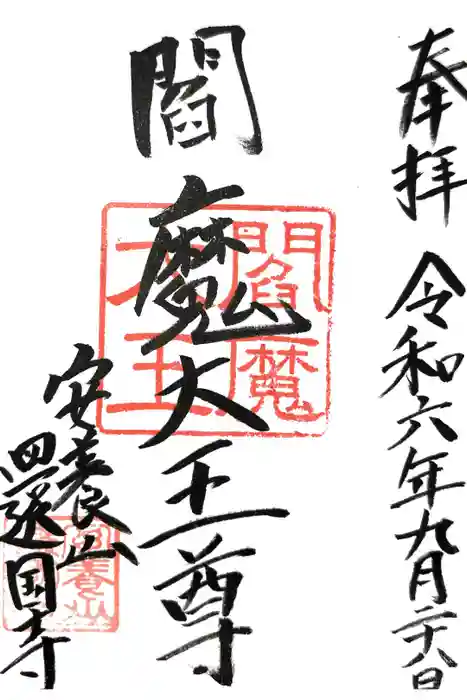 奉拝 令和六年九月二十八日
閻魔大王尊
閻魔
大王
安養山
還国寺